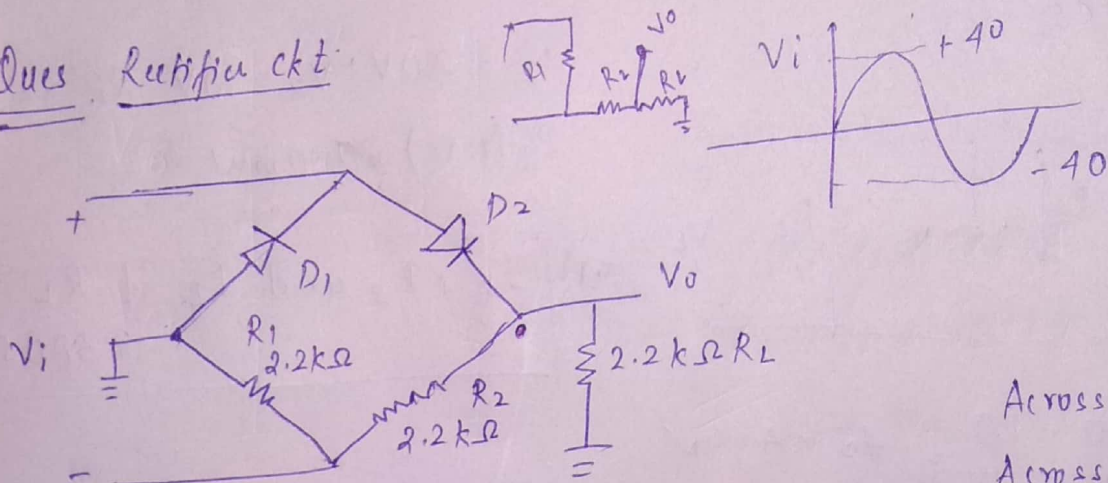 Ques Rectifier ckt
R1
R2
Vo
RL
Vi
+ 40
- 40
+
D1
D2
Vo
Vi
R1
2.2kΩ
R2
2.2kΩ
2.2kΩ RL
-
Across
Across